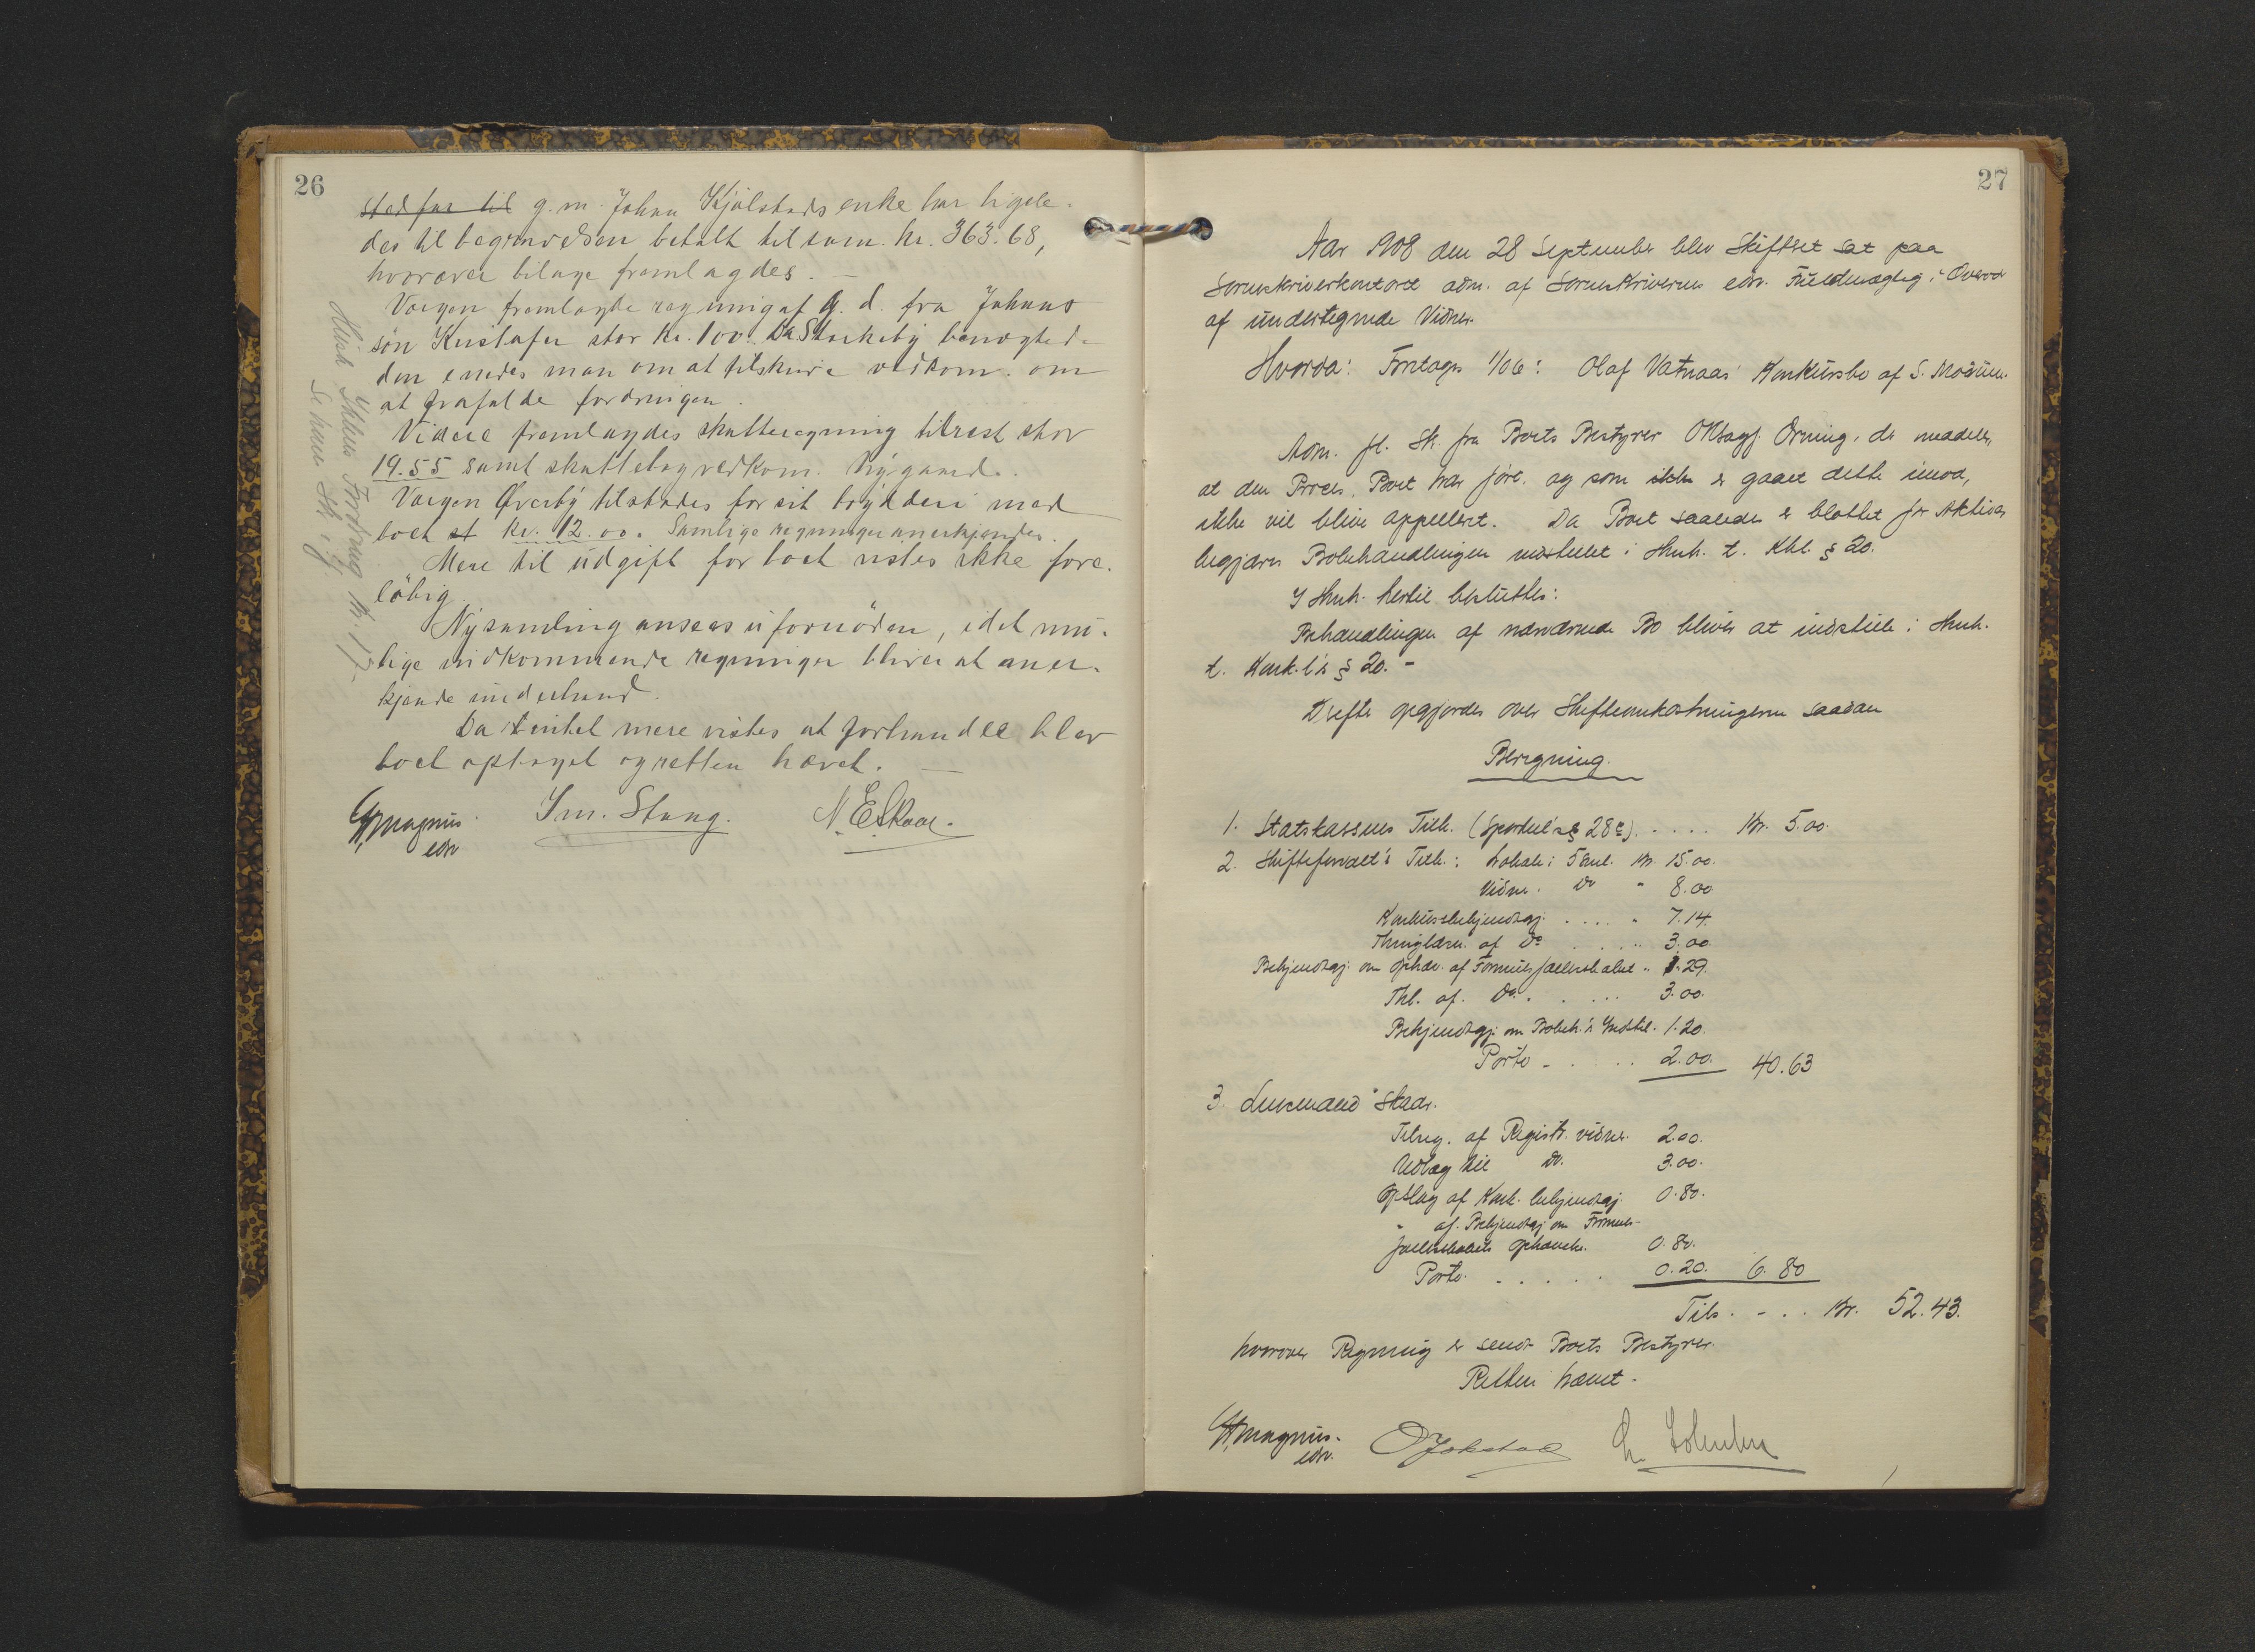 26
sted før til g. m. Johan Kjølstads enke har ligele-
des til begravelsen betalt tilsam. kr. 363.68,
hvorover bilage fremlagdes. —
Værgen fremlagde regning af G. d. fra Johans
søn Kristafer stor kr. 100. Da
den enedes man om at tilskrive vedkom. om
at frafalde fordringen.
Videre fremlagdes skatteregning tilrest stor
19.55 samt skattelag vedkom. Nygaard.
Værgen Øverby tilstodes for sit bryderi med
boet kr. 12.00. Samlige regninger anerkjendes.
Mere til udgift for boet vistes ikke fore-
løbig.
Ny samling ansees ufornøden, idet mu-
lige vedkommende regninger bliver at aner-
kjende underhaand.
Da intet mere vistes at forhandle blev
boet optaget og retten hævet. —
Magnus. Im. Stang. N. E. Skaar.
edsv
Fordring kr. 17
27
Aar 1908 den 28 September blev Skifteret sat paa
Sorenskriverkontoret adm. af Sorenskriverens edsv. Fuldmægtig i Overvær
af undertegnede Vidner.
Hvorda: Foretoges 1/06: Olaf Vatnaas' Konkursbo af S. Modum.
Adm. fl. Sk. fra Boets Bestyrer ORsagf. Orning, der meddeler,
at den Proces, Boet har ført og som ikke er gaaet dette imod,
ikke vil blive appelleret. Da Boet saaledes er blottet for Aktiva
begjæres Bobehandlingen indstillet i Henh. t. Kkl. § 20.
I Henh. hertil besluttes:
Behandlingen af nærværende Bo bliver at indstille i Henh.
t. Konk.l's § 20. -
Derefter opgjordes over Skifteomkostningerne saadan
Beregning.
1. Statskassens Tilk. (Sportel's § 28 c) . . . . Kr. 5.00.
2. Skifteforvalt's Tilk.: Lokale i 5 Saml. kr. 15.00.
Vidner. Do " 8.00
Konkursbekjendtgj. . . . . " 7.14
Thinglæsn. af Do . . . . " 3.00
Bekjendtgj. om Ophæv. af Formuesfællesskabet " 1.29.
Thl. af. Do. . . . . 3.00.
Bekjendtgj. om Bobeh.'s Indstil. 1.20.
Porto - . . . . 2.00. 40.63
3. Lensmand Skaar.
Tilsig. af Registr. vidner. 2.00.
Udlæg til Do. 3.00.
Opslag af Konk. bekjendtgj. 0.80.
" af. Bekjendtgj. om Formues-
fællesskabets Ophævelse. 0.80.
Porto. . . . . . 0.20. 6.80
Tils. - . . Kr. 52.43.
hvorover Regning er sendt Boets Bestyrer.
Retten hævet.
Magnus. O Jokstad
edsv.